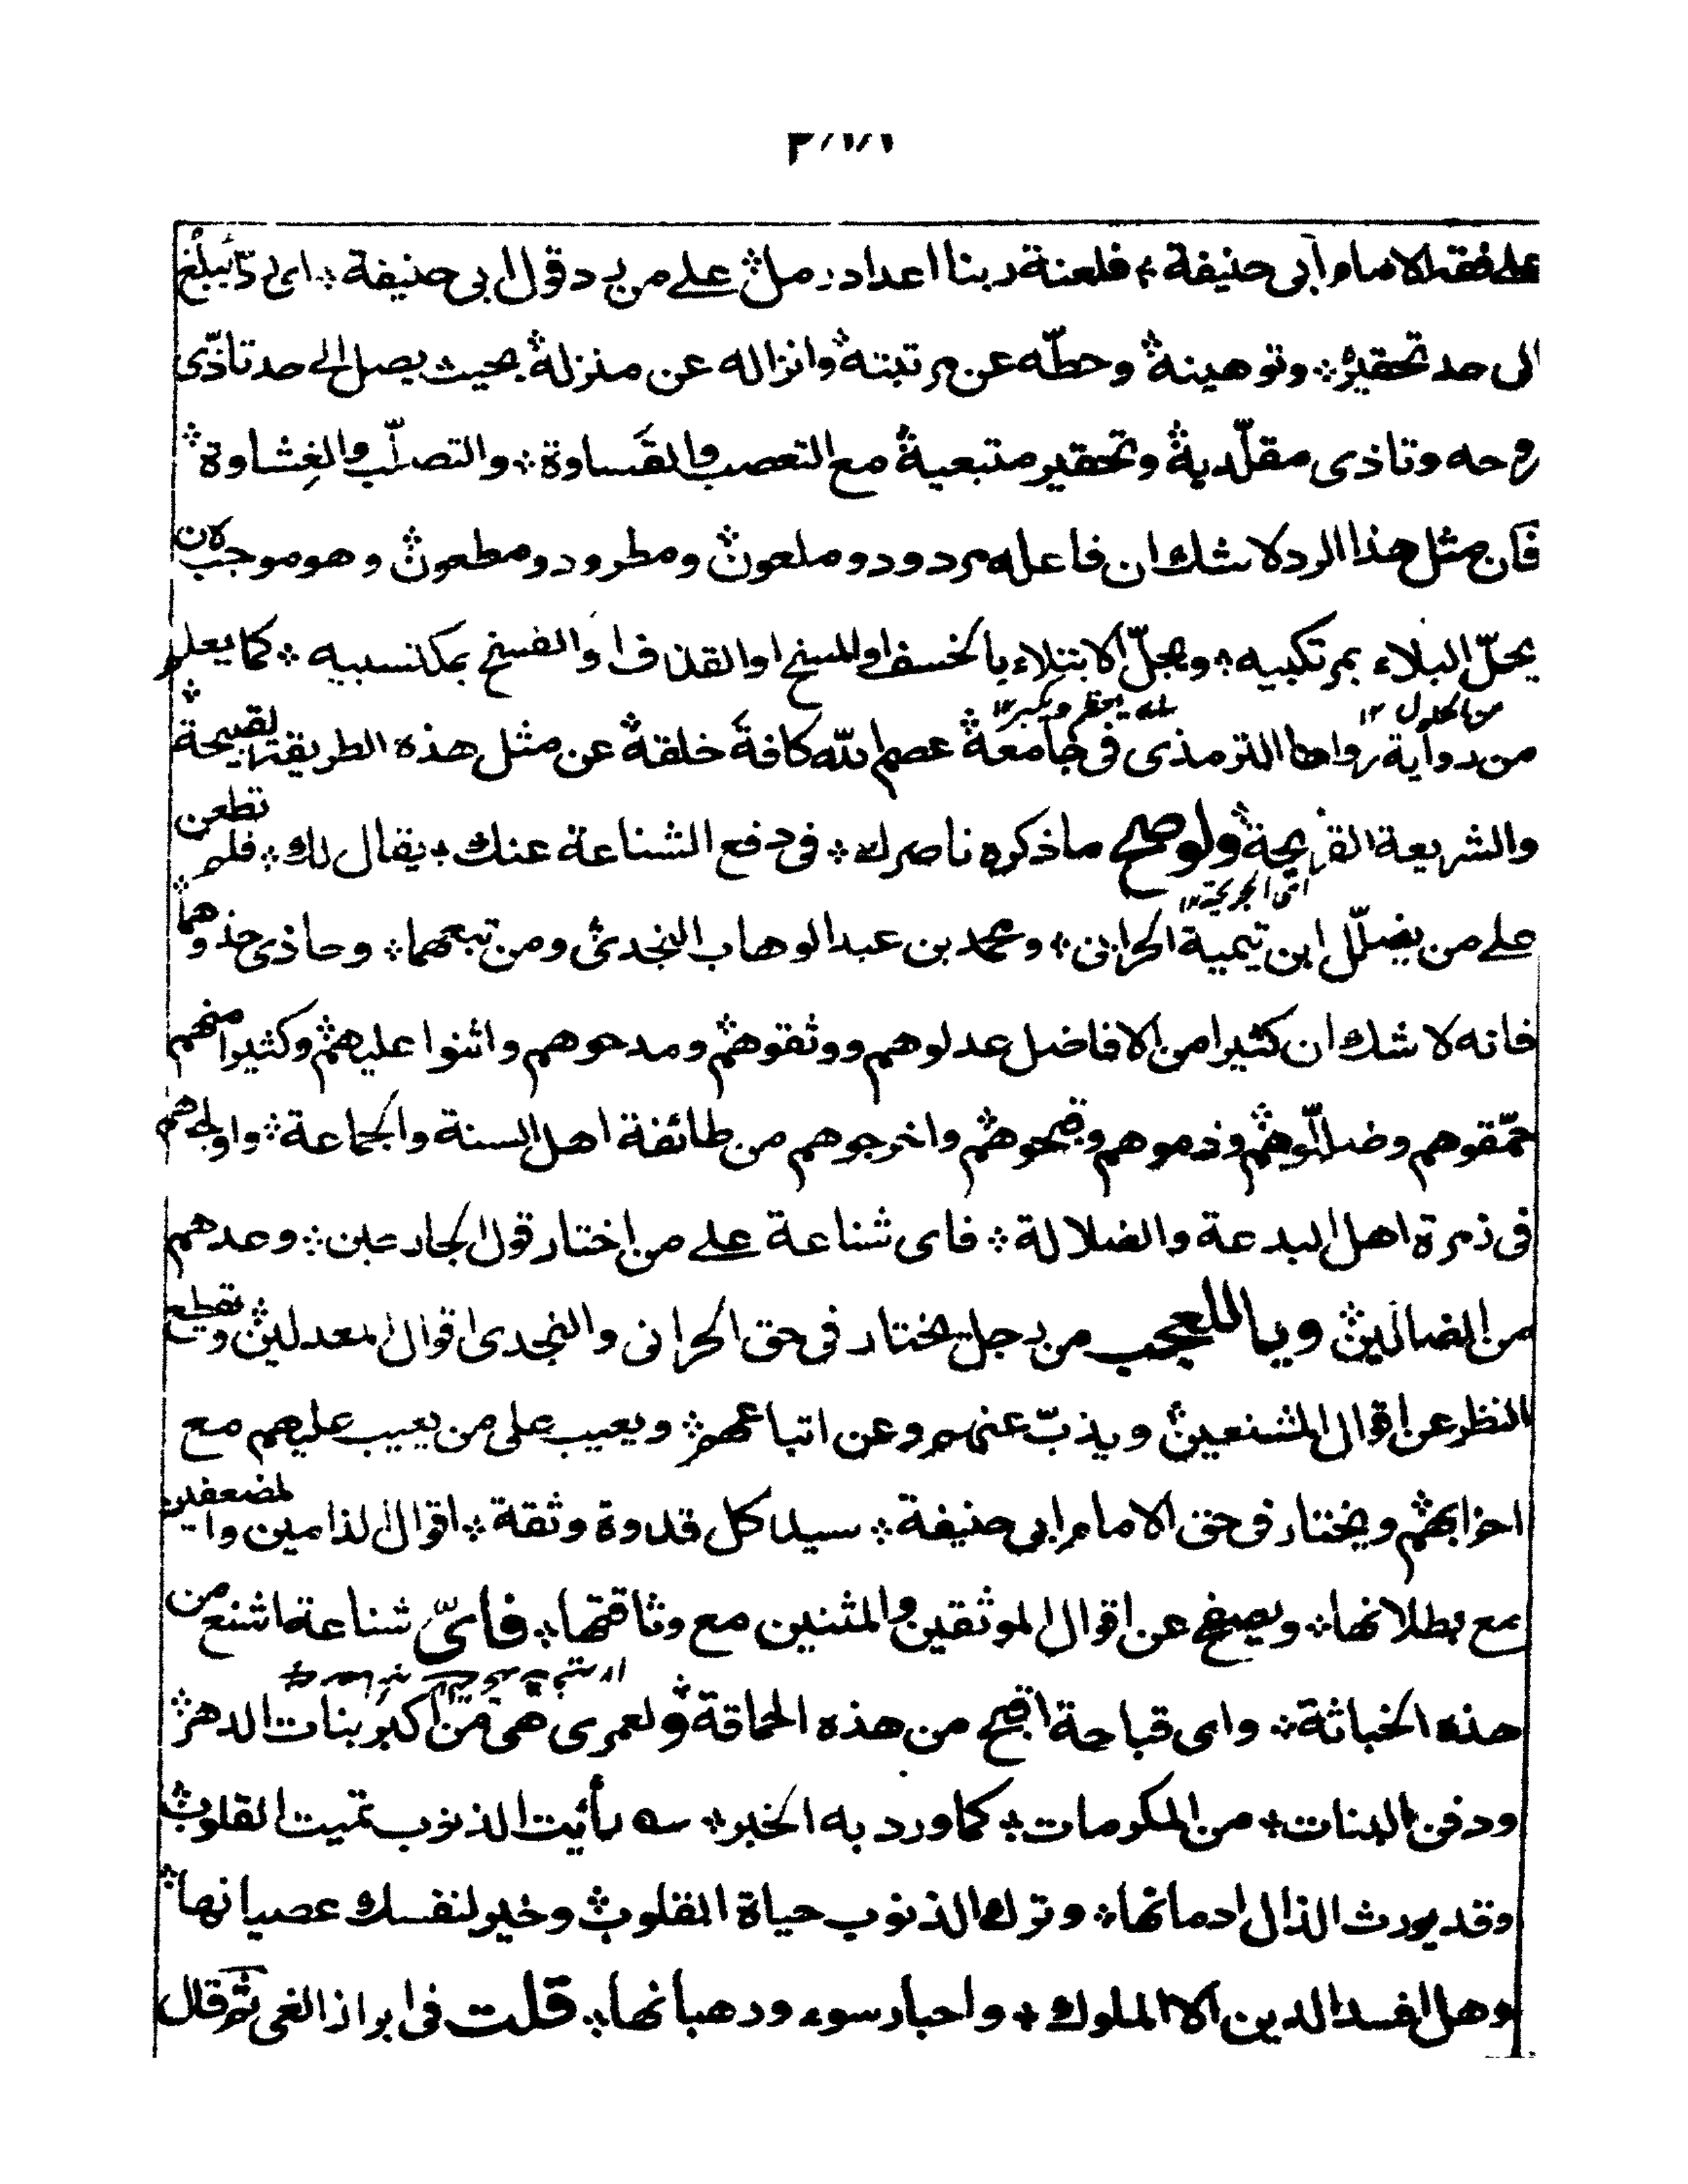 على فقه الامام ابى حنيفة ؞ فلعنة ربنا اعداد رمل ؞ على من رد قول ابى حنيفة ؞ اى ردّ يبلغ
الى حد تحقيره ؞ وتوهينه ؞ وحطّه عن مرتبته ؞ وانزاله عن منزله ؞ بحيث يصل الى حد تاذّى
روحه وتاذى مقلّديه ؞ وتحقير متبعيه ؞ مع التعصب والقَساوة ؞ والتصلّب والغِشاوة ؞
فان مثل هذا الرد لا شك ان فاعله مردود وملعون ؞ ومطرود ومطعون ؞ وهو موجب لان
يحلّ البلاء بمرتكبيه ؞ ويحلّ الابتلاء بالخسف او المسخ او القذف او الفسخ بمكتسبيه ؞ كما يعلم
من الحلول ١٢
من رواية رواها الترمذى فى جامعه ؞ عصم الله كافةَ خلقه ؞ عن مثل هذه الطريقة القبيحة ؞
والشريعة القريحة ؞ ولو صح ما ذكره ناصرك ؞ فى دفع الشناعة عنك ؞ يقال لك ؞ فلم تطعن
اى الجريحة ١٢
على من يضلّل ابن تيمية الحرانى ؞ ومحمد بن عبد الوهاب النجدى ؞ ومن تبعهما ؞ وحاذى حذوهما ؞
فانه لا شك ان كثيرا من الافاضل عدلوهم ووثقوهم ؞ ومدحوهم واثنوا عليهم ؞ وكثيرا منهم
حمّقوهم وضللّوهم ؞ وذموهم وقبحوهم ؞ واخرجوهم من طائفة اهل السنة والجماعة ؞ واولجوهم
فى زمرة اهل البدعة والضلالة ؞ فاى شناعة على من اختار قول الجارحين ؞ وعدهم
من الضالين ؞ ويا للعجب من رجل يختار فى حق الحرانى والنجدى اقوال المعدلين ؞ ويقطع
النظر عن اقوال المشنعين ؞ ويذبّ عنهم وعن اتباعهم ؞ ويعيب على من يعيب عليهم مع
احزابهم ؞ ويختار فى حق الامام ابى حنيفة ؞ سيد كل قدوة وثقة ؞ اقوال الذامين والمضعفين
مع بطلانها ؞ ويصفح عن اقوال الموثقين والمثنين مع وثاقتها ؞ فاىّ شناعة اشنع من
هذه الخباثة ؞ واى قباحة اقبح من هذه الحماقة ؞ ولعمرى هى من اكبر بنات الدهر ؞
ودفن البنات ؞ من المكرمات ؞ كما ورد به الخبر ؞ رأيت الذنوب تميت القلوب ؞
وقد يورث الذل ادمانها ؞ وترك الذنوب حياة القلوب ؞ وخير لنفسك عصيانها ؞
وهل افسد الدين الا الملوك ؞ واحبار سوء ورهبانها ؞ قلت فى ابراز الغى ثم قال